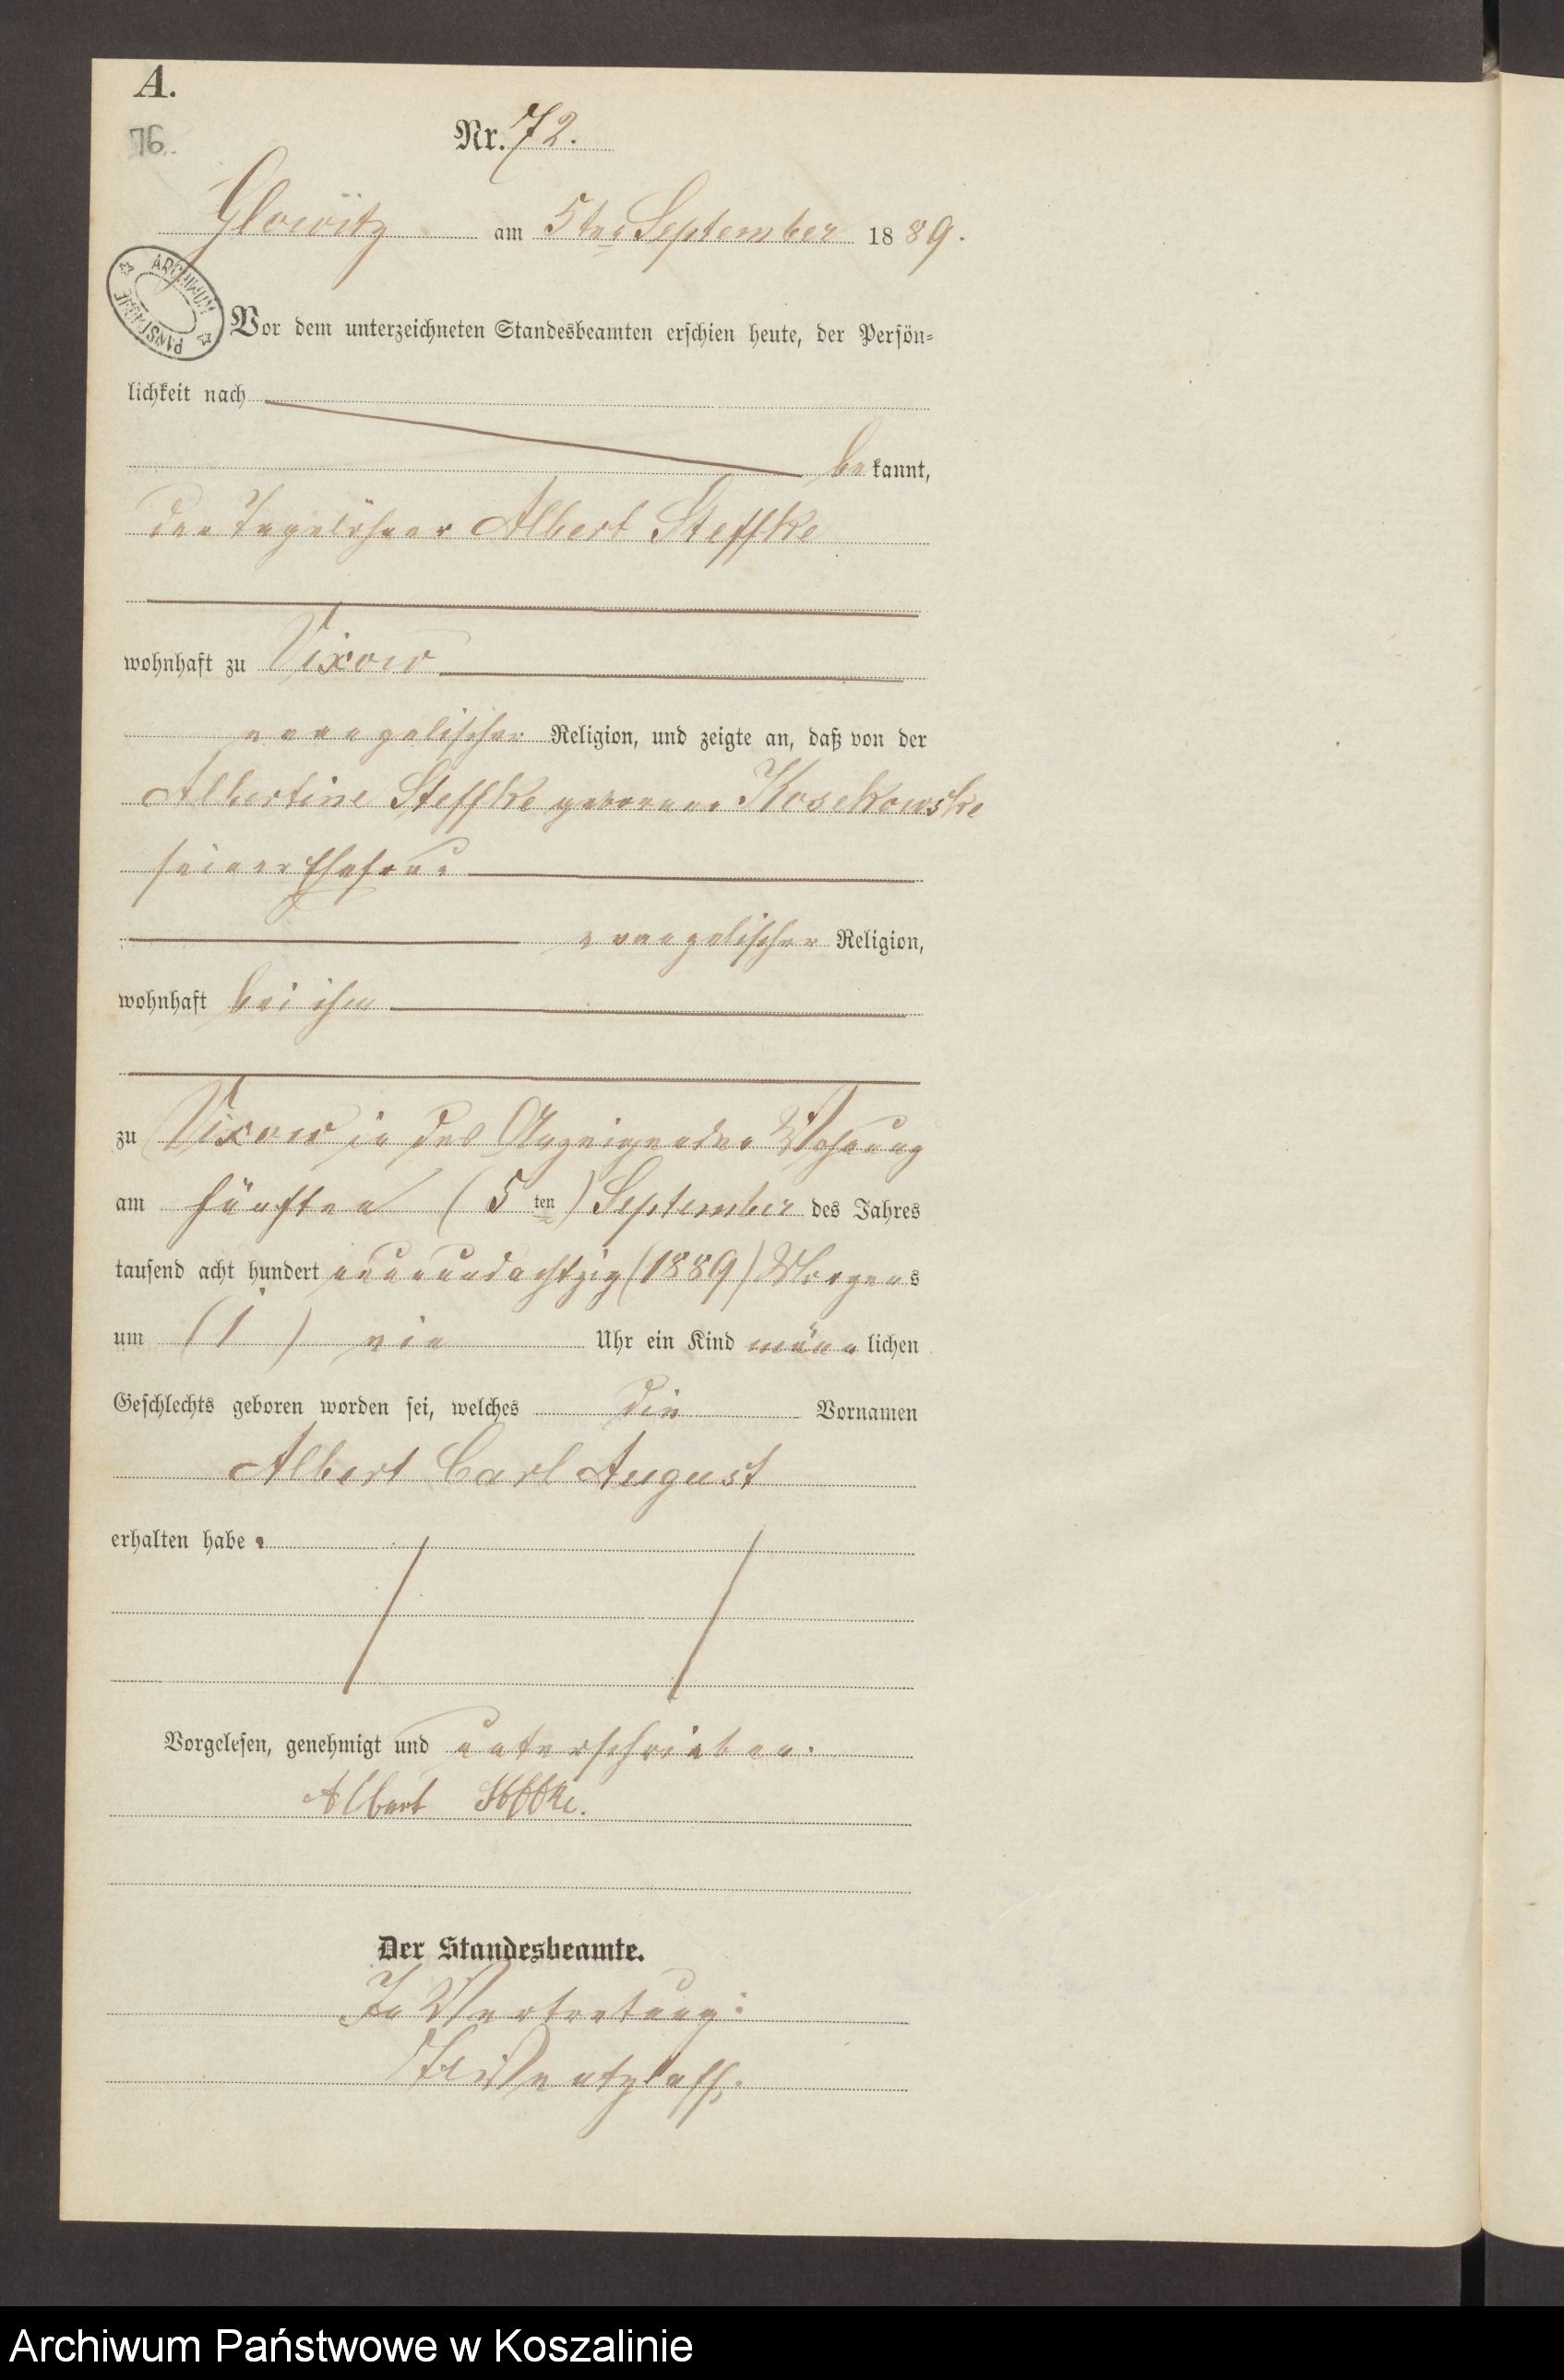 A.
76.
Nr. 72.
Glowitz am 5ten September 1889.
ARCHIWUM PAŃSTWOWE
Vor dem unterzeichneten Standesbeamten erschien heute, der Persön-
lichkeit nach
bekannt,
der Tagelöhner Albert Steffke
wohnhaft zu Vixow
evangelischer Religion, und zeigte an, daß von der
Albertine Steffke geborene Kosekowske
seiner Ehefrau
evangelischer Religion,
wohnhaft bei ihm
zu Vixow in des Anzeigenden Wohnung
am fünften (5ten) September des Jahres
tausend acht hundert neunundachtzig (1889) Morgens
um (1) ein Uhr ein Kind männlichen
Geschlechts geboren worden sei, welches die Vornamen
Albert Carl August
erhalten habe.
Vorgelesen, genehmigt und unterschrieben.
Albert Steffke.
Der Standesbeamte.
In Vertretung:
Wentzlaff.
Archiwum Państwowe w Koszalinie